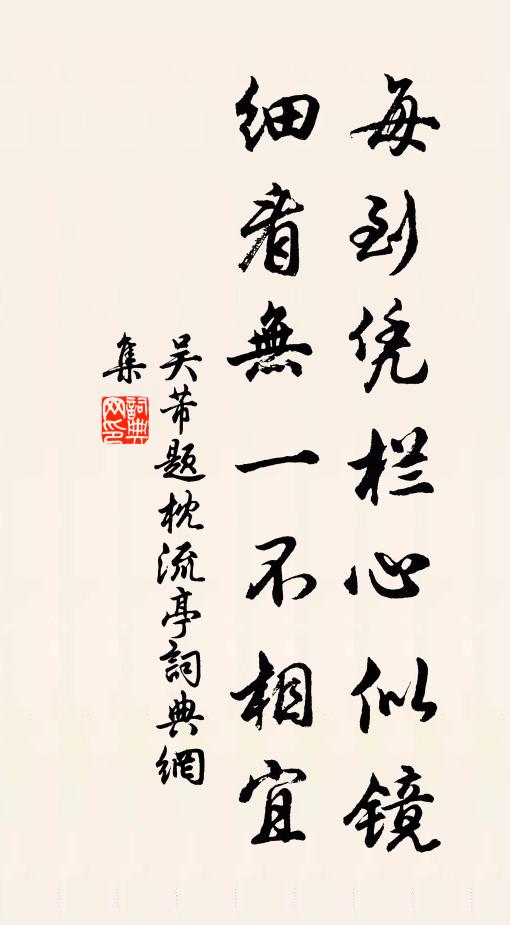 每到凭栏心似镜
细看無一不相宜
吴芾题枕流亭詞典網
集
詞典
网印